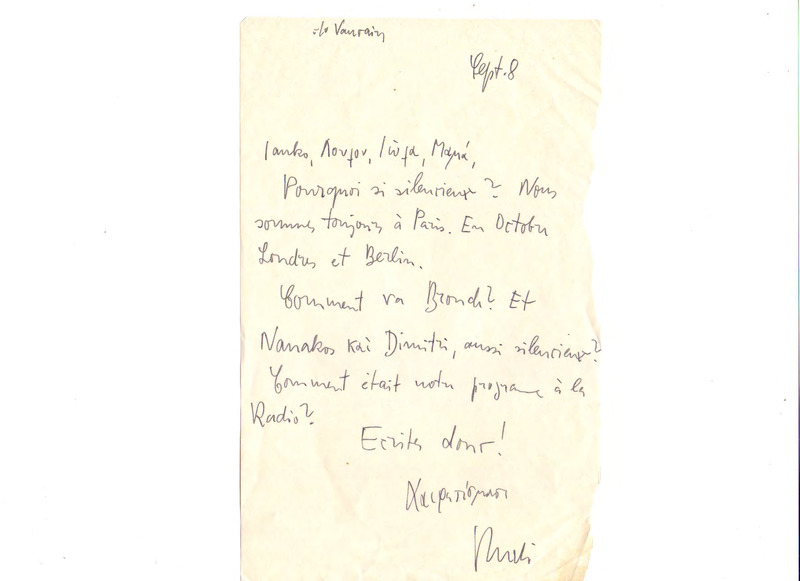 c/o Vaurain
Sept. 8
Ianko, Λουλου, Γιώγα, Μαμά,
Pourquoi si silencieux? Nous
sommes toujours à Paris. En Octobre
Londres et Berlin.
Comment va Bronch? Et
Nanakos καὶ Dimitri, aussi silencieux?
Comment était notre programe à la
Radio?
Ecrites donc!
Χαιρετίσματα
Rudi